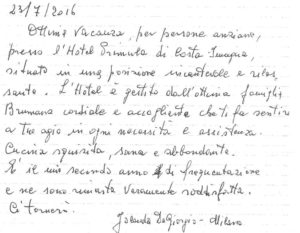 23/7/2016
Ottima vacanza, per persone anziane,
presso l'Hotel Primula di Costa Imagna,
situato in una posizione incantevole e rilas
sante. L'Hotel è gestito dall'ottima famiglia
Brumana cordiale e accogliente che ti fa sentire
a tuo agio in ogni necessità e assistenza.
Cucina squisita, sana e abbondante.
E' il mio secondo anno di frequentazione
e ne sono rimasta veramente soddisfatta.
Ci tornerò.
Jolanda DeGiorgio - Milano